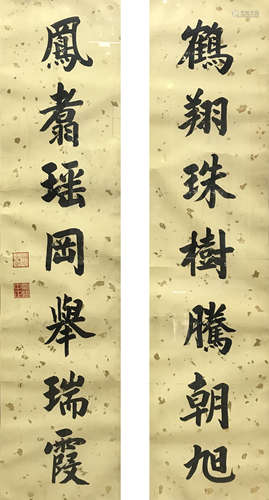 鶴翔珠樹騰朝旭
鳳翥瑶岡舉瑞霞